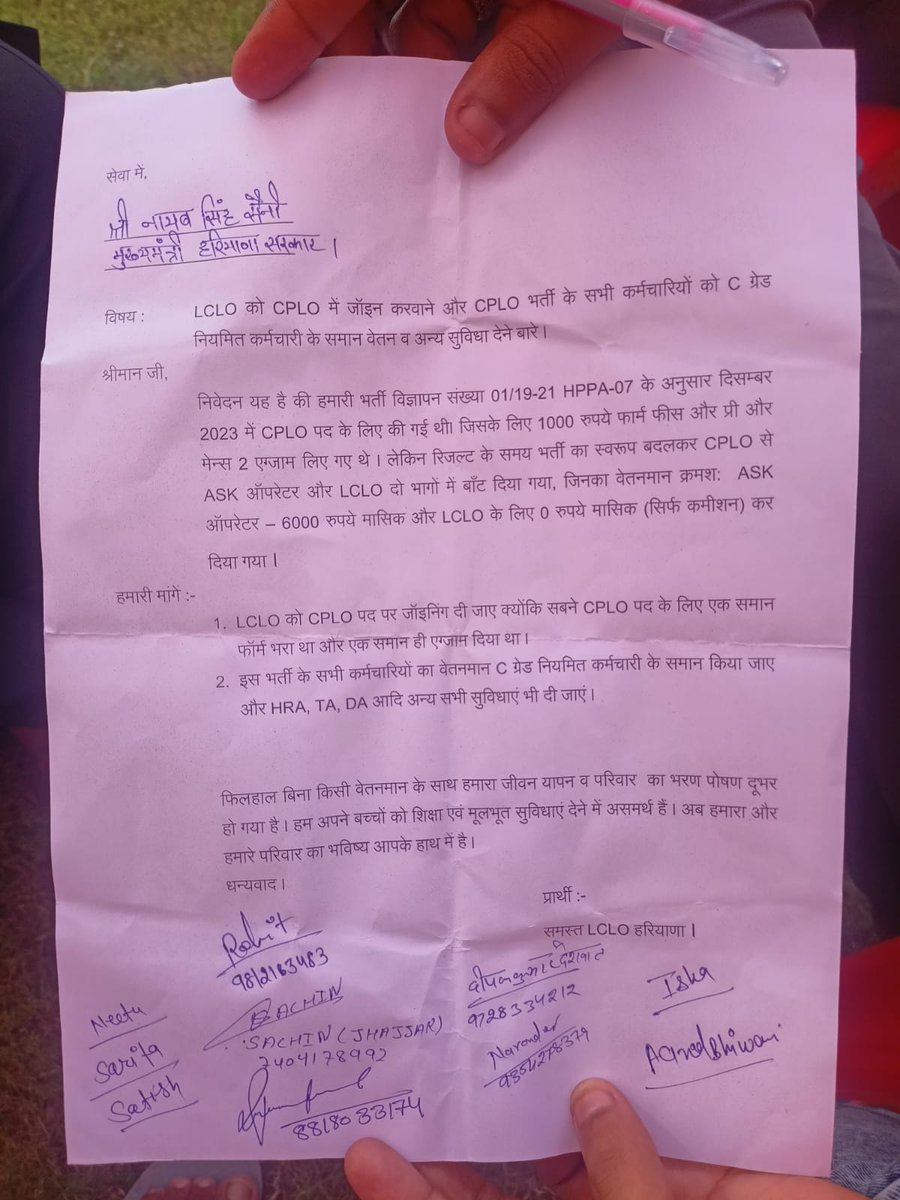 सेवा में,
श्री नायब सिंह सैनी
मुख्यमंत्री हरियाणा सरकार।
विषय : LCLO को CPLO में जॉइन करवाने और CPLO भर्ती के सभी कर्मचारियों को C ग्रेड
नियमित कर्मचारी के समान वेतन व अन्य सुविधा देने बारे।
श्रीमान जी,
निवेदन यह है की हमारी भर्ती विज्ञापन संख्या 01/19-21 HPPA-07 के अनुसार दिसम्बर
2023 में CPLO पद के लिए की गई थी। जिसके लिए 1000 रुपये फार्म फीस और प्री और
मेन्स 2 एग्जाम लिए गए थे। लेकिन रिजल्ट के समय भर्ती का स्वरूप बदलकर CPLO से
ASK ऑपरेटर और LCLO दो भागों में बाँट दिया गया, जिनका वेतनमान क्रमश: ASK
ऑपरेटर – 6000 रुपये मासिक और LCLO के लिए 0 रुपये मासिक (सिर्फ कमीशन) कर
दिया गया।
हमारी मांगें :-
1. LCLO को CPLO पद पर जॉइनिंग दी जाए क्योंकि सबने CPLO पद के लिए एक समान
फॉर्म भरा था और एक समान ही एग्जाम दिया था।
2. इस भर्ती के सभी कर्मचारियों का वेतनमान C ग्रेड नियमित कर्मचारी के समान किया जाए
और HRA, TA, DA आदि अन्य सभी सुविधाएं भी दी जाएं।
फिलहाल बिना किसी वेतनमान के साथ हमारा जीवन यापन व परिवार का भरण पोषण दूभर
हो गया है। हम अपने बच्चों को शिक्षा एवं मूलभूत सुविधाएं देने में असमर्थ हैं। अब हमारा और
हमारे परिवार का भविष्य आपके हाथ में है।
धन्यवाद।
प्रार्थी :-
समस्त LCLO हरियाणा।
Rohit
9812163483
Neetu
Sarita
Satish
SACHIN
SACHIN (JHAJJAR)
7404178992
8818033174
दीपक कुमार देशवाल
9728334212
Narender
Iska